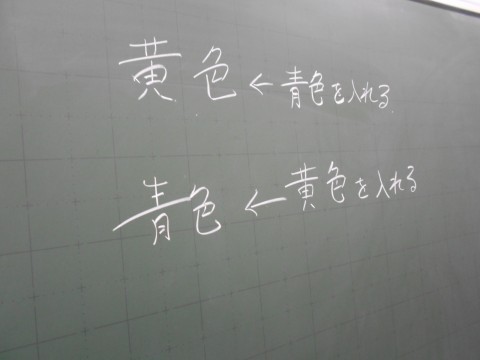 黄色←青色を入れる
青色←黄色を入れる